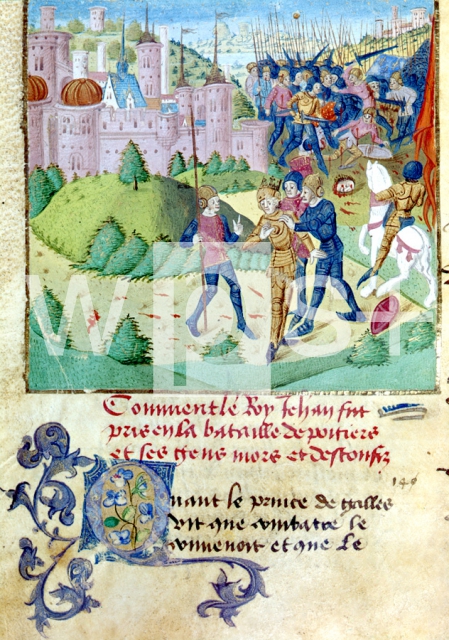 wpsfoto
Comment le Roy Jehan fut
pris en la bataille de poitiers
et ses gens mors et desconfiz
140
Quant le prince de galles
vit que combatre le
convenoit et que le